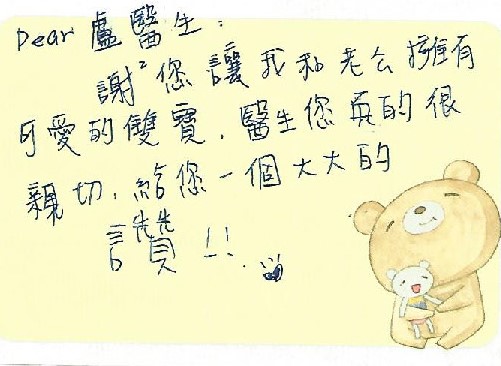 Dear 盧醫生:
謝²您讓我和老公擁有
可愛的雙寶, 醫生您真的很
親切, 給您一個大大的
讚!!